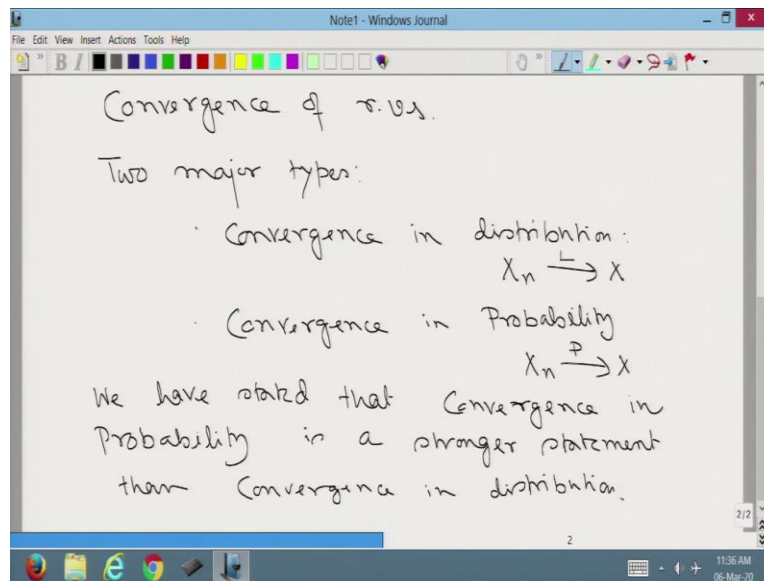 Note1 - Windows Journal
File Edit View Insert Actions Tools Help
B I
Convergence of r.vs.
Two major types:
· Convergence in distribution:
Xn —L→ X
· Convergence in Probability
Xn —P→ X
We have stated that Convergence in
Probability is a stronger statement
than Convergence in distribution.
2/2
2
11:36 AM
06-Mar-20